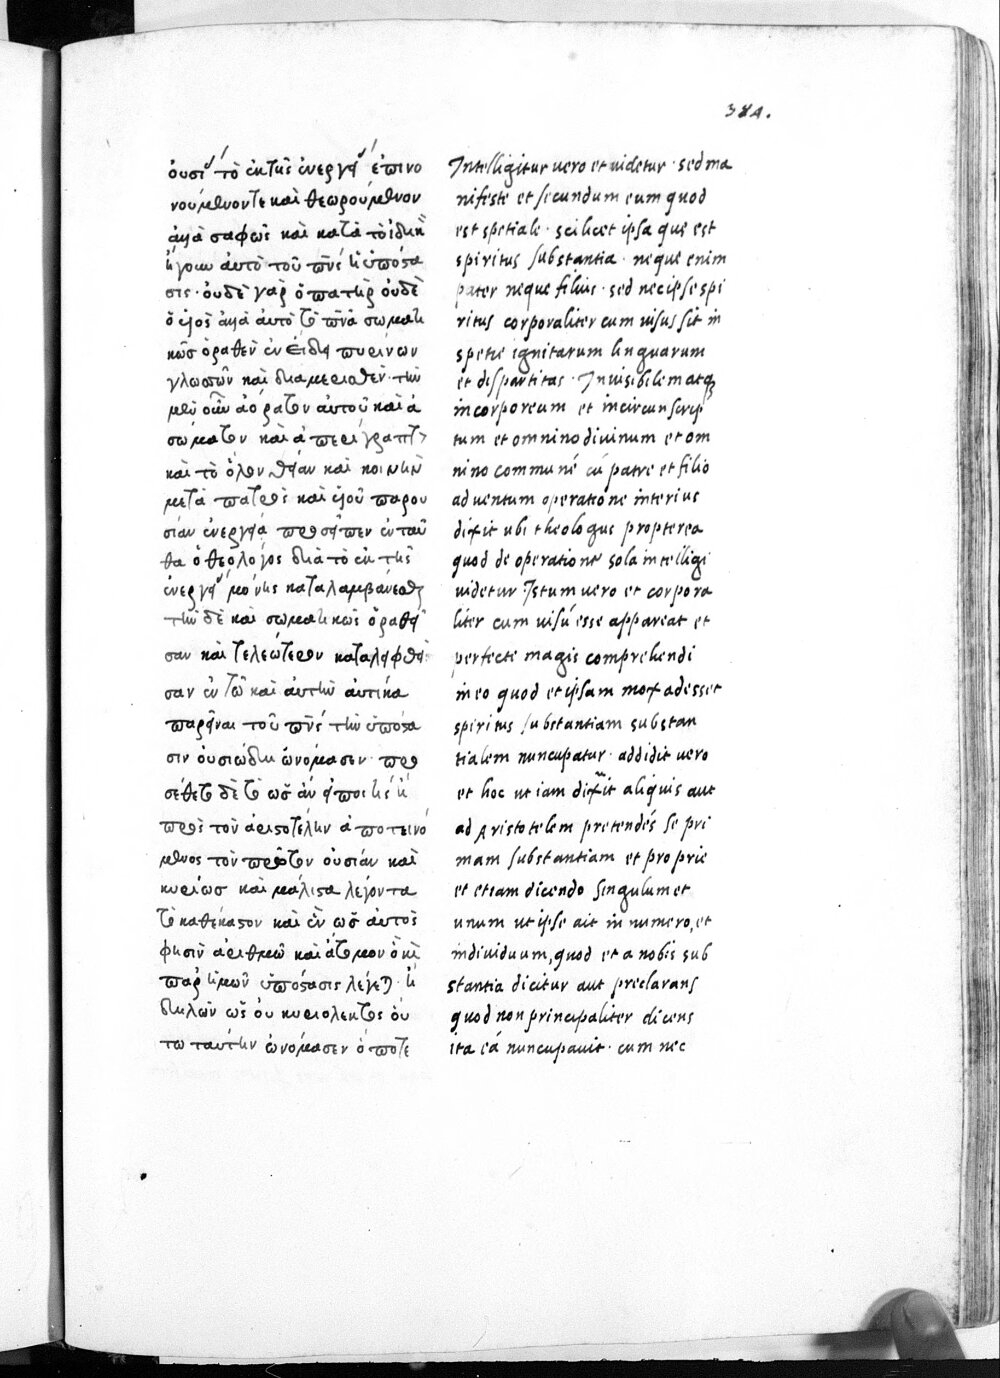 384.
οὐσί τὸ ἐκ τῆς ἐνεργεί ἐπινο
νούμενόν τε καὶ θεωρούμενον
ἀλλὰ σαφῶς καὶ κατὰ τὸ ἰδικὸ
ἤγουν αὐτὸ τοῦ πνς ἡ ὑπόστα
σις· οὐδὲ γὰρ ὁ πατὴρ οὐδὲ
ὁ υἱὸς ἀλλὰ αὐτὸ τὸ πνα σωματι
κῶς ὁραθὲν ἐν εἴδει πυρίνων
γλωσσῶν καὶ διαμερισθέν· τὴν
μὲν οὖν ἀόρατον αὐτοῦ καὶ ἀ
σώματον καὶ ἀπερίγραπτ
καὶ τὸ ὅλον θείαν καὶ κοινὴν
μετὰ πατρὸς καὶ υἱοῦ παρου
σίαν ἐνεργεία προσεῖπεν ἐνταῦ
θα ὁ θεολόγος διὰ τὸ ἐκ τῆς
ἐνεργεί μόνης καταλαμβάνεσθαι
τὴν δὲ καὶ σωματικῶς ὁραθεῖ
σαν καὶ τελεώτερον καταληφθεῖ
σαν ἐν τῶ καὶ αὐτὴν αὐτίκα
παρεῖναι τοῦ πνς τὴν ὑπόστα
σιν οὐσιώδη ὠνόμασεν· προ
σέθετο δὲ τὸ ὡς ἂν εἴποι τις ἢ
πρὸς τὸν ἀριστοτέλην ἀποτεινό
μενος τὸν πρώτον οὐσίαν καὶ
κυρίως καὶ μάλιστα λέγοντα
τὸ καθέκαστον καὶ ἓν ὡς αὐτός
φησιν ἀριθμῶ καὶ ἄτομον ὃ καὶ
παρ ἡμῶν ὑπόστασις λέγεται· ἢ
δηλῶν ὡς οὐ κυριολεκτος οὕ
τω ταύτην ὠνόμασεν ὁπότε
Intelligitur uero et uidetur · sed ma
nifeste et secundum eum quod
est spetiale · scilicet ipsa que est
spiritus substantia · neque enim
pater neque filius · sed nec ipse spi
ritus corporaliter cum uisus sit in
spetie ignitarum linguarum
et dispartitas · Inuisibilem atq
incorporeum et incircunscrip
tum et omnino diuinum et om
nino communé cú patre et filio
aduentum operatione interius
dixit ubi theologus propterea
quod de operatione sola intelligi
uidetur Istum uero et corpora
liter cum uisú esse appareat et
perfecte magis comprehendi
in eo quod et ipsam mox adesset
spiritus substantiam substan
tialem nuncupatur · addidit uero
et hoc ut iam dixit aliquis aut
ad Aristotelem pretendés se pri
mam substantiam et proprie
et etiam dicendo singulum et
unum ut ipse ait in numero, et
indiuiduum, quod et a nobis sub
stantia dicitur aut preclarans
quod non principaliter dicens
ita eá nuncupauit · cum nec